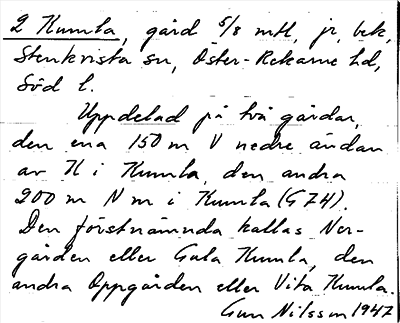 2 Kumla, gård 5/8 mtl, jr, bek,
Stenkvista sn, Öster-Rekarne hd,
Söd l.
Uppdelad på två gårdar,
den ena 150 m V nedre ändan
av K i Kumla, den andra
200 m N m i Kumla (G74).
Den förstnämnda kallas Ner-
gården eller Gula Kumla, den
andra Oppgården eller Vita Kumla.
Gun Nilsson 1947